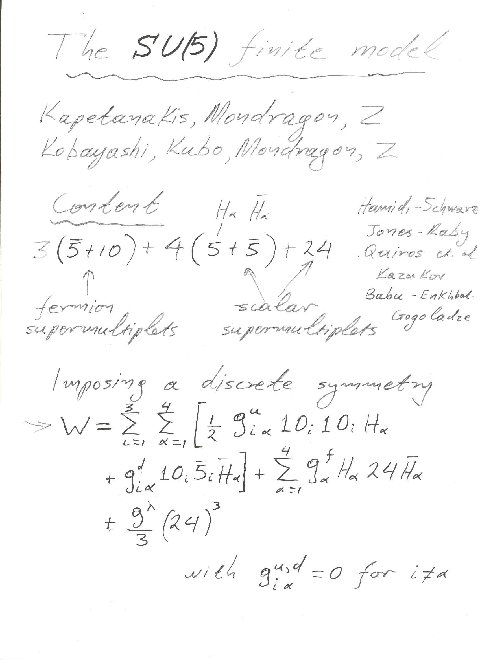 The SU(5) finite model
Kapetanakis, Mondragon, Z
Kobayashi, Kubo, Mondragon, Z
Content
Hα H̄α
3(5̄+10) + 4(5+5̄) + 24
fermion supermultiplets
scalar supermultiplets
Hamidi-Schwarz
Jones-Raby
Quiros et al
Kazakov
Babu-Enkhbat-
Gogoladze
Imposing a discrete symmetry
→ W = ∑_{i=1}^{3} ∑_{α=1}^{4} [ 1/2 g^u_{iα} 10_i 10_i Hα
+ g^d_{iα} 10_i 5̄_i H̄α ] + ∑_{α=1}^{4} g^f_α Hα 24 H̄α
+ g^λ/3 (24)^3
with g^{u,d}_{iα} = 0 for i≠α